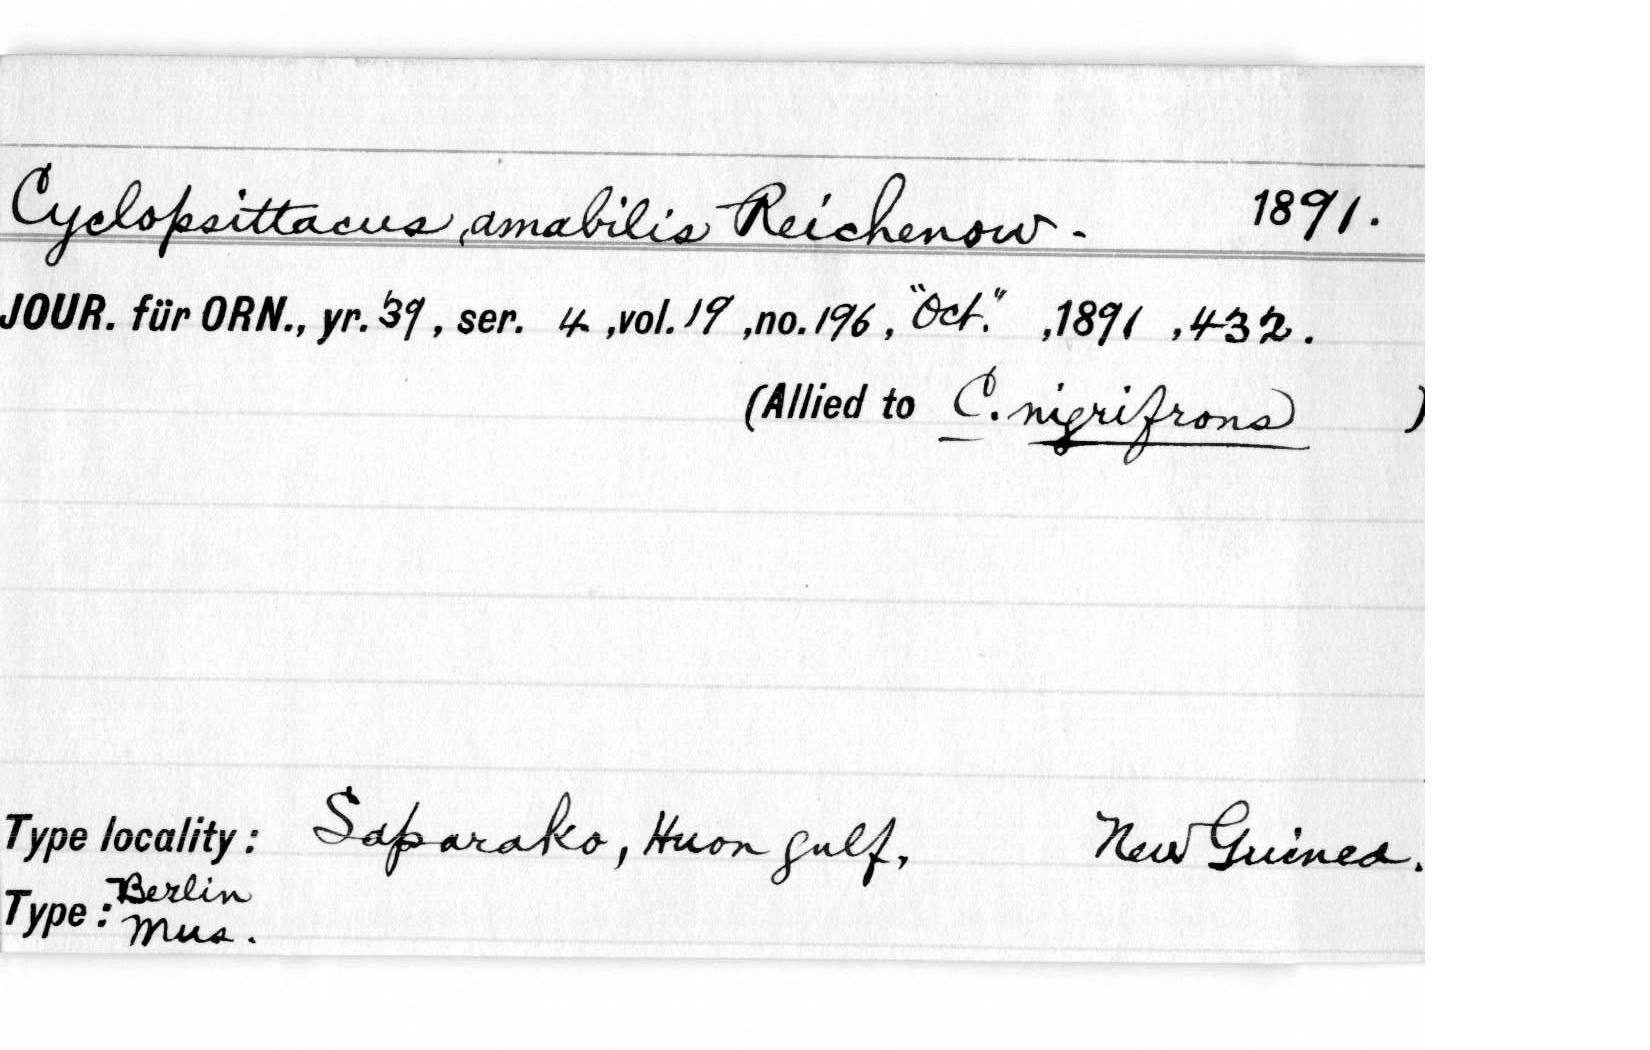 Cyclopsittacus amabilis Reichenow. 1891.
JOUR. für ORN., yr. 39, ser. 4, vol. 19, no. 196, "Oct.", 1891, 432.
(Allied to C. nigrifrons)
Type locality: Saparako, Huon gulf, New Guinea.
Type: Berlin
Mus.